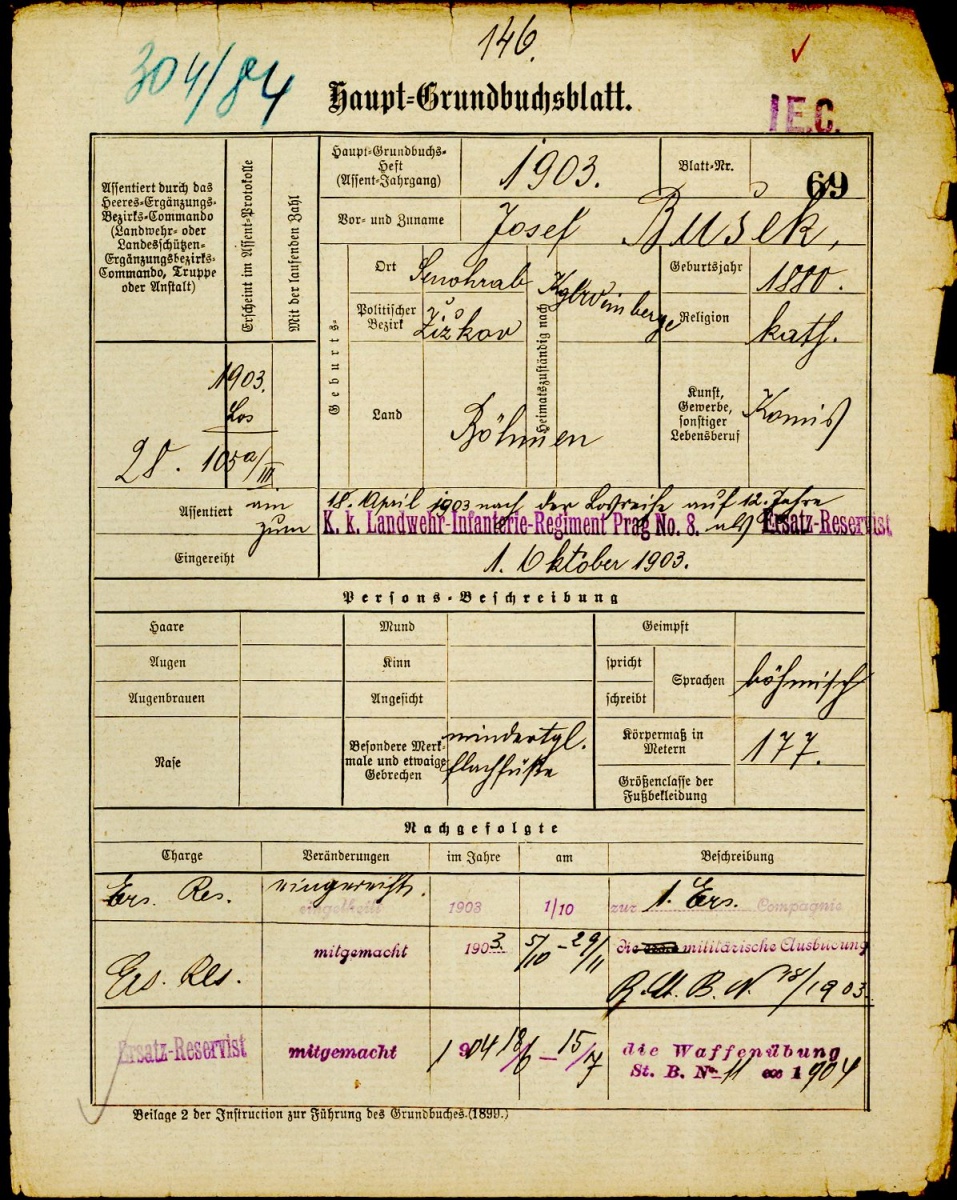 146.
304/84
Haupt=Grundbuchsblatt.
I E.C.
Assentiert durch das
Heeres-Ergänzungs-
Bezirks-Commando
(Landwehr- oder
Landesschützen-
Ergänzungsbezirks-
Commando, Truppe
oder Anstalt)
Erscheint im Assent-Protokolle
Mit der laufenden Zahl
Haupt-Grundbuchs-
Heft
(Assent-Jahrgang)
1903.
Blatt-Nr.
69
Vor- und Zuname
Josef Bušek,
Geburts-
Ort
Senohrab
Heimatszuständig nach
Kgl. Weinberge
Geburtsjahr
1880.
Politischer
Bezirk
Žižkov
Religion
kath.
Land
Böhmen
Kunst,
Gewerbe,
sonstiger
Lebensberuf
Komis
1903.
Los
28. 105a/III
Assentiert
am
18. April 1903 nach der Losreihe auf 12 Jahre
zum
K. k. Landwehr-Infanterie-Regiment Prag No. 8. als Ersatz-Reservist
Eingereiht
1. Oktober 1903.
Persons-Beschreibung
Haare
Mund
Geimpft
Augen
Kinn
spricht
Sprachen
böhmisch
Augenbrauen
Angesicht
schreibt
Nase
Besondere Merk-
male und etwaige
Gebrechen
mindertgl.
Flachfüße
Körpermaß in
Metern
177.
Größenclasse der
Fußbekleidung
Nachgefolgte
Charge Veränderungen im Jahre am Beschreibung
Ers. Res. eingereiht. eingetheilt 1903 1/10 zur 1. Ers. Compagnie
mitgemacht 1903. 5/10 – 29/11 die militärische Ausbildung
Ers. Res. R. St. B. N. 18/1903.
Ersatz-Reservist mitgemacht 1904 18/6 – 15/7 die Waffenübung
St. B. No. 11 ex 1904
Beilage 2 der Instruction zur Führung des Grundbuches.(1899.)